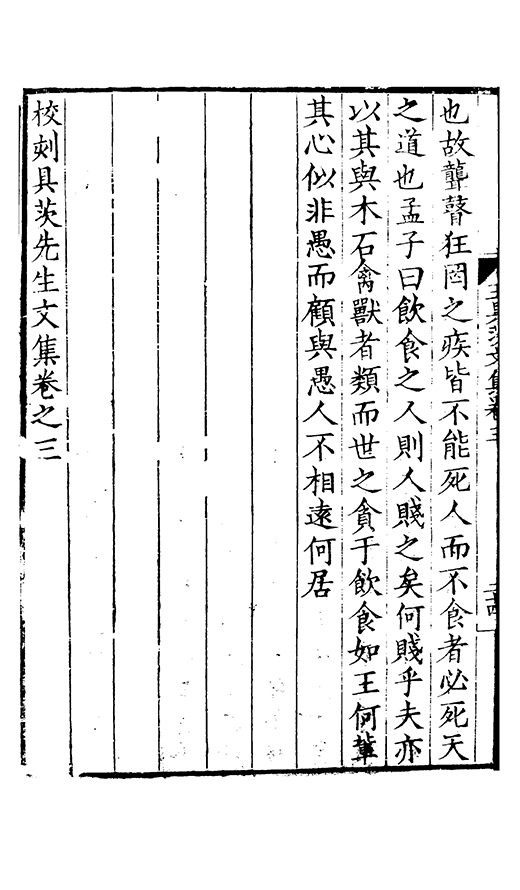 也故聾瞽狂罔之疾皆不能死人而不食者必死天
之道也孟子曰飲食之人則人賤之矣何賤乎夫亦
以其與木石禽獸者類而世之貪于飲食如王何輩
其心似非愚而顧與愚人不相遠何居
校刻具茨先生文集卷之三